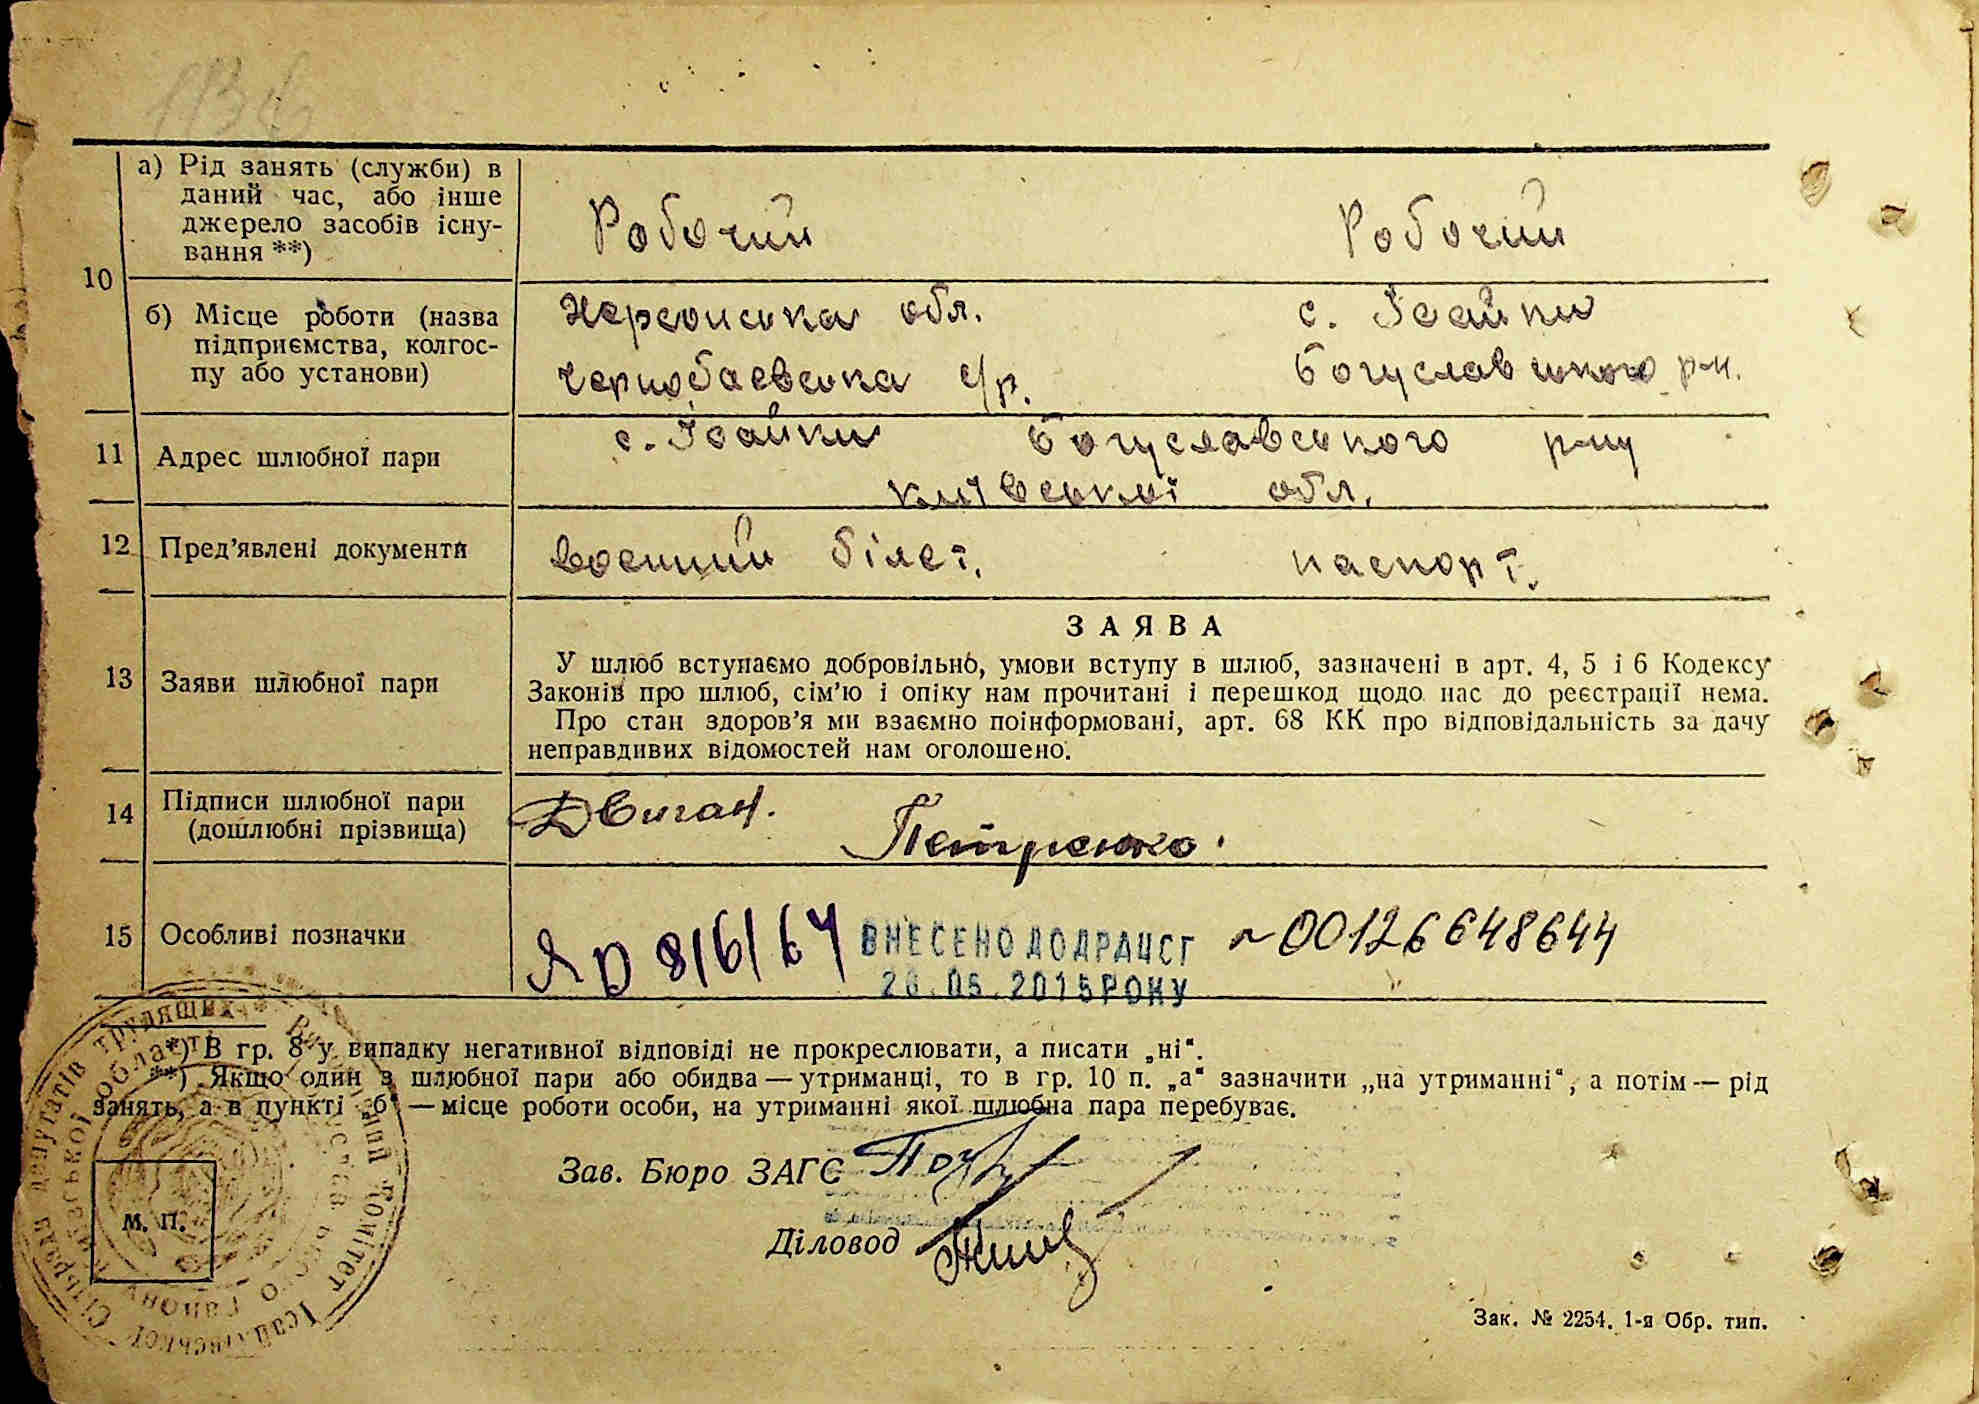 а) Рід занять (служби) в
даний час, або інше
джерело засобів існу-
вання **)
Робочий Робочий
10
б) Місце роботи (назва
підприємства, колгос-
пу або установи)
Херсонська обл. с. Ісайки
Чернобаевська с/р. Богуславського р-н.
11 Адрес шлюбної пари
с. Ісайки Богуславського р-ну
Київської обл.
12 Пред’явлені документи
Воєнний білет. паспорт.
13 Заяви шлюбної пари
ЗАЯВА
У шлюб вступаємо добровільно, умови вступу в шлюб, зазначені в арт. 4, 5 і 6 Кодексу
Законів про шлюб, сім’ю і опіку нам прочитані і перешкод щодо нас до реєстрації нема.
Про стан здоров’я ми взаємно поінформовані, арт. 68 КК про відповідальність за дачу
неправдивих відомостей нам оголошено.
14 Підписи шлюбної пари
(дошлюбні прізвища)
Двиган.
Петренко.
15 Особливі позначки
ВНЕСЕНО ДО ДРАЦСГ
05. 2015 РОКУ
00126648644
*) В гр. 8 у випадку негативної відповіді не прокреслювати, а писати „ні“.
**) Якщо один з шлюбної пари або обидва — утриманці, то в гр. 10 п. „а“ зазначити „на утриманні“, а потім — рід
занять, а в пункті „б“ — місце роботи особи, на утриманні якої шлюбна пара перебуває.
Зав. Бюро ЗАГС
М. П.
Діловод
Зак. № 2254. 1-я Обр. тип.